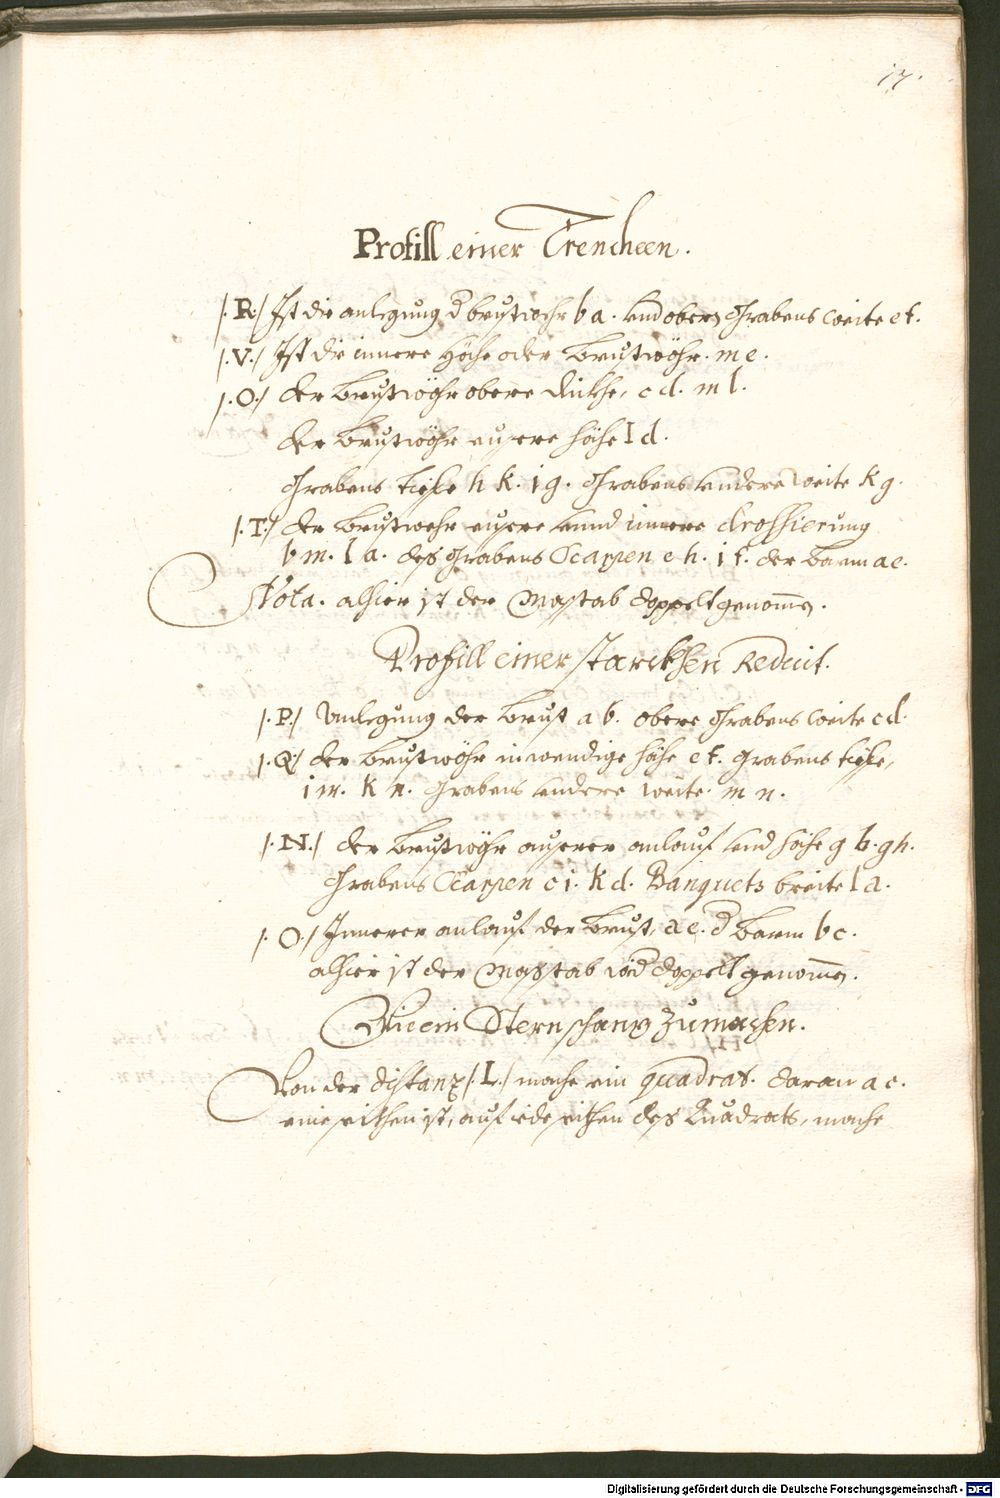 17.
Profill einer Trencheen.
/.R./ Ist die anlegung d brustwehr b a. vnd obern Grabens weite e f.
/.V./ Ist die innere Höche oder Brustwöhr. m e.
/.O./ der Brustwöhr obere dickhe, c d. m l.
der Brustwöhr eusere höhe l d.
Grabens tieffe h k. i g. Grabens vndere weite k g.
/.T./ der Brustwehr eusere vnnd innere drossierung
b m. l a. des Grabens Scarpen e h. i f. der barm a e.
Nota. alhier ist der Masstab doppelt genom̄en.
Profill einer starckhen Reduit.
/.P./ Anlegung der Brust a b. obere Grabens weite c d.
/.Q./ der Brustwöhr inwendige höhe e f. grabens tieffe,
i m. k n. Grabens vndere weite. m n.
/.N./ der Brustwöhr auserer anlauf vnd höhe g b. g h.
Grabens Scarpen c i. k d. Banquets breite l a.
/.O./ Innerer anlauf der Brust, a e. d Barm b c.
alhier ist der Masstab wid doppelt genom̄en.
Wie ein Sternschantz zumachen.
Von der distantz /.L./ mache ein quadrat. daran a c.
eine seithen ist, auf iede seithen des Quadrats, mache
Digitalisierung gefördert durch die Deutsche Forschungsgemeinschaft - DFG